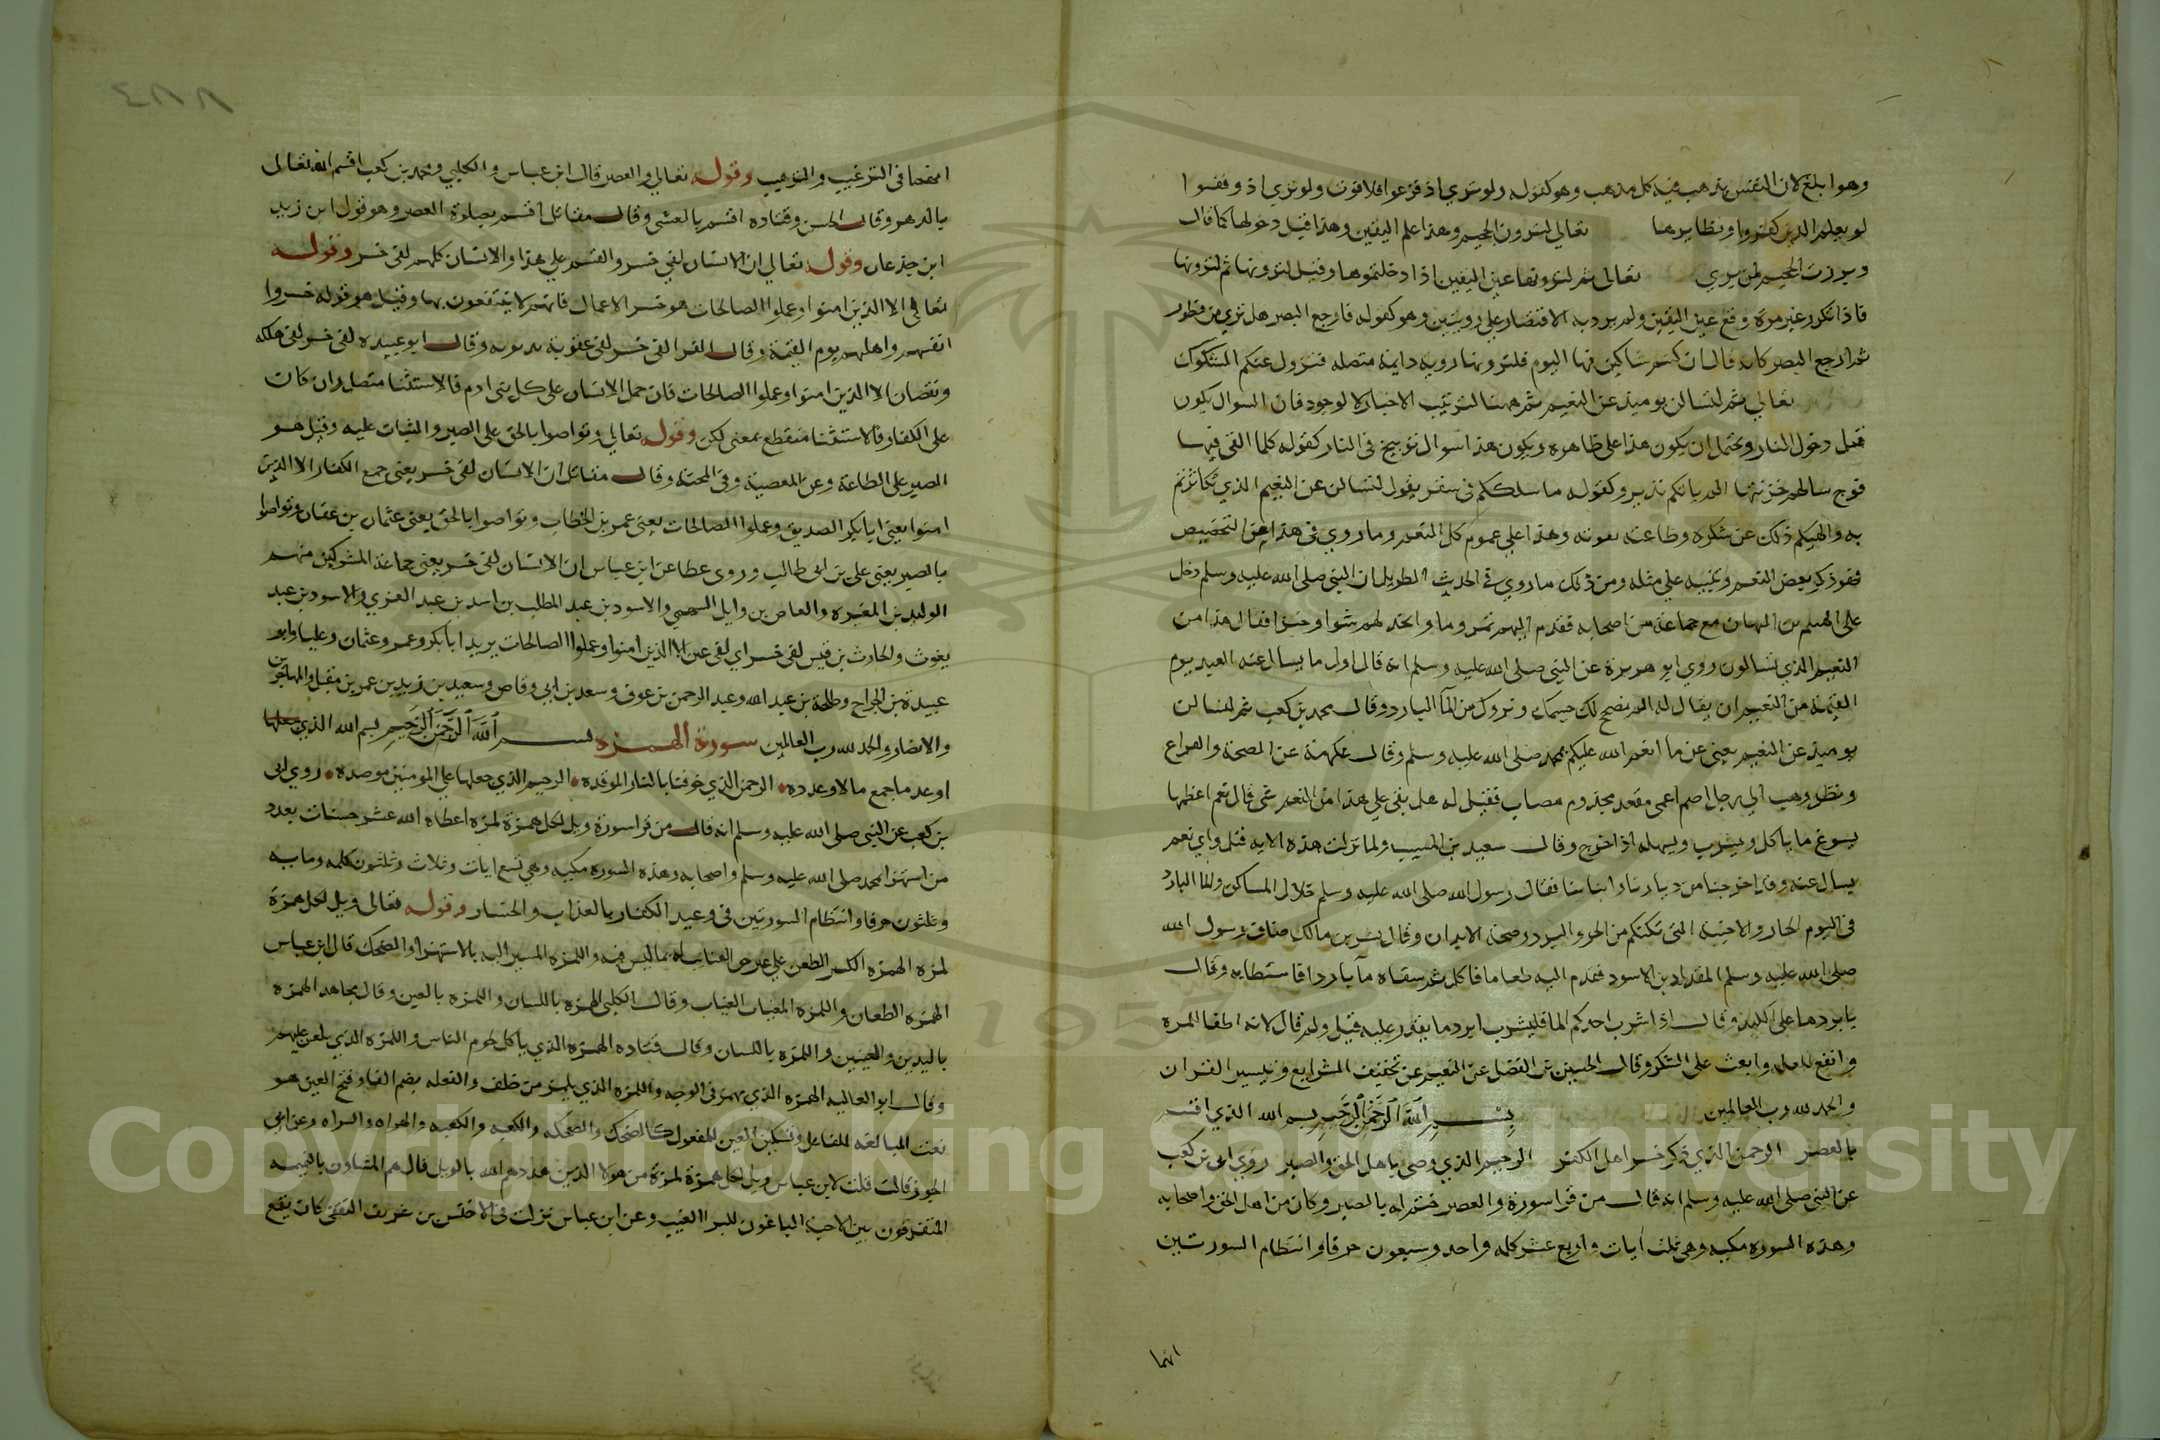 وهو ابلغ لان النفس يذهب فيه كل مذهب وهو كقوله ولو تري اذ فزعوا فلا فوت ولو تري اذ وقفوا
لو يعلم الذين كفروا ونظايرها تعالي لترون الجحيم وهذا علم اليقين وهذا قبل دخولها كما قال
وبرزت الجحيم لمن يري تعالى ثم لترونها عين اليقين اذا دخلتموها وقيل لترونها ثم لترونها
فاذا تكرر غير مرة وقع عين اليقين ولم يرد به الاقتصار علي رويتين وهو كقوله فارجع البصر هل تري من فطور
ثم ارجع البصر كانه قال ان كنتم شاكين فيها اليوم فلترونها روية دايمة متصلة فتزول عنكم الشكوك
تعالي ثم لتسالن يوميذ عن النعيم ثم ههنا لترتيب الاخبار لا لوجود فان السوال يكون
قبل دخول النار ويحتمل ان يكون هذا على ظاهره ويكون هذا سوال توبيخ في النار كقوله كلما القي فيها
فوج سالهم خزنتها الم ياتكم نذير وكقوله ما سلككم في سقر يقول لتسالن عن النعيم الذي تكاثرتم
به والهيكم ذلك عن شكره وطاعته وهذا علي عموم كل النعم وما روي في هذا من التخصيص
فهو ذكر بعض النعم وتنبيه علي مثله ومن ذلك ما روي في الحديث الطويل ان النبي صلى الله عليه وسلم دخل
على الهيثم بن التيهان مع جماعة من اصحابه فقدم اليهم تمر وما واتخذ لهم شوا وخبزا فقال هذا من
النعيم الذي تسالون روي ابو هريرة عن النبي صلى الله عليه وسلم انه قال اول ما يسال عنه العبد يوم
القيمة من النعيم ان يقال له الم نصح لك جسمك ونرويك من الما البارد وقال محمد بن كعب ثم لتسالن
يوميذ عن النعيم يعني عن ما انعم الله عليكم بمحمد صلى الله عليه وسلم وقال عكرمة عن الصحة والفراغ
ونظر وهب الي رجل اصم اعمى مقعد مجذوم مصاب فقيل له هل بقي علي هذا من النعيم شي قال نعم اعظمها
يسوغ ما ياكل ويشرب ويسهله اذا خرج وقال سعيد بن المسيب ولما نزلت هذه الاية قيل واي نعيم
يسال عنه وقد اخرجنا من ديارنا وابناينا فقال رسول الله صلى الله عليه وسلم ظلال المساكن والما البارد
في اليوم الحار والاخبية التي تكنكم من الحر والبرد وصحة الابدان وقال انس بن مالك ضاف رسول الله
صلى الله عليه وسلم المقداد بن الاسود فقدم اليه طعاما فاكل ثم سقاه مآ باردا فاستطابه وقال
يا بردها على الكبد وقال اذا شرب احدكم الما فليشرب ابرد ما يقدر عليه قيل ولم قال لانه اطفا للمرة
وانفع للعلة وابعث على الشكر وقال الحسين بن الفضل عن النعيم عن تخفيف الشرايع وتيسير القران
والحمد لله رب العالمين بسم الله الرحمن الرحيم بسم الله الذي اقسم
بالعصر الرحمن الذي ذكر خسر اهل الكفر الرحيم الذي وصى باهل الحق والصبر روي ابي بن كعب
عن النبي صلى الله عليه وسلم انه قال من قرا سورة والعصر ختم له بالصبر وكان من اهل الحق واصحابه
وهذه السورة مكية وهي ثلث ايات واربع عشر كلمة واحد وسبعون حرفا وانتظام السورتين
انهما
انهما في الترغيب والترهيب وقوله تعالي والعصر قال ابن عباس والكلبي ومحمد بن كعب اقسم الله تعالى
بالدهر وقال الحسن وقتاده اقسم بالعشي وقال مقاتل اقسم بصلوة العصر وهو قول ابن زيد
ابن جدعان وقوله تعالي ان الانسان لفي خسر والقسم علي هذا والانسان كلهم لفي خسر وقوله
تعالى الا الذين امنوا وعملوا الصالحات هو خسر الاعمال فانهم لا ينتفعون بها وقيل هو قوله خسروا
انفسهم واهليهم يوم القيمة وقال الفرا لفي خسر لفي عقوبة بذنوبه وقال ابو عبيدة لفي خسر لفي هلكه
ونقصان الا الذين امنوا وعملوا الصالحات فان حمل الانسان على كل بني ادم فالاستثنا متصل وان كان
على الكفار فالاستثنا منقطع بمعنى لكن وقوله تعالي وتواصوا بالحق على الصبر والثبات عليه وقيل هو
الصبر على الطاعة وعن المعصية وفي المحنة وقال مقاتل ان الانسان لفي خسر يعني جمع الكفار الا الذين
امنوا يعني ابا بكر الصديق وعملوا الصالحات يعني عمر بن الخطاب وتواصوا بالحق يعني عثمان بن عفان وتواصوا
بالصبر يعني علي بن ابي طالب وروى عطا عن ابن عباس ان الانسان لفي خسر يعني جماعة المشركين منهم
الوليد بن المغيرة والعاص بن وايل السهمي والاسود بن عبد المطلب بن اسد بن عبد العزي والاسود بن عبد
يغوث والحارث بن قيس لفي خسر اي لفي غبن الا الذين امنوا وعملوا الصالحات يريد ابا بكر وعمر وعثمان وعليا وابو
عبيدة بن الجراح وطلحة بن عبد الله وعبد الرحمن بن عوف وسعد بن ابي وقاص وسعيد بن زيد بن عمر بن نفيل والمهاجرين
والانصار والحمد لله رب العالمين سورة الهمزه بسم الله الرحمن الرحيم بسم الله الذي
اوعد ما جمع مالا وعدده الرحمن الذي خوفنا بالنار الموقده الرحيم الذي جعلها علي المومنين موصده روي ابي
بن كعب عن النبي صلى الله عليه وسلم انه قال من قرا سورة ويل لكل همزة لمزة اعطاه الله عشر حسنات بعدد
من استهزا بمحمد صلى الله عليه وسلم واصحابه وهذه السورة مكية وهي تسع ايات وثلاث وثلثون كلمه ومايه
وثلثون حرفا وانتظام السورتين في وعيد الكفار بالعذاب والخسار وقوله تعالى ويل لكل همزة
لمزة الهمزه الكثير الطعن علي غيره بما ليس فيه واللمزه المسير اليه بالاستهزا والضحك قال ابن عباس
الهمزه الطعان واللمزه المغتاب العياب وقال الكلبي الهمزه باللسان واللمزه بالعين وقال مجاهد الهمزه
باليدين والعينين واللمزة باللسان وقال قتاده الهمزه الذي ياكل لحوم الناس واللمزه الذي يطعن عليهم
وقال ابو العالية الهمزه الذي يهمز في الوجه واللمزه الذي يلمز من خلف والفعله بضم الفا وفتح العين هو
نعت المبالغة للفاعل وتسكين العين للمفعول كالضحك والضحكه
الجوزا قالت قلت لابن عباس ويل لكل همزة لمزة من هولا الذين هددهم الله بالويل قال هم المشاون بالنميمه
المفرقون بين الاحبة الباغون للبرا العيب وعن ابن عباس نزلت في الاخنس بن شريق الثقفي كان يقع
Copyright © King Saud University
1957